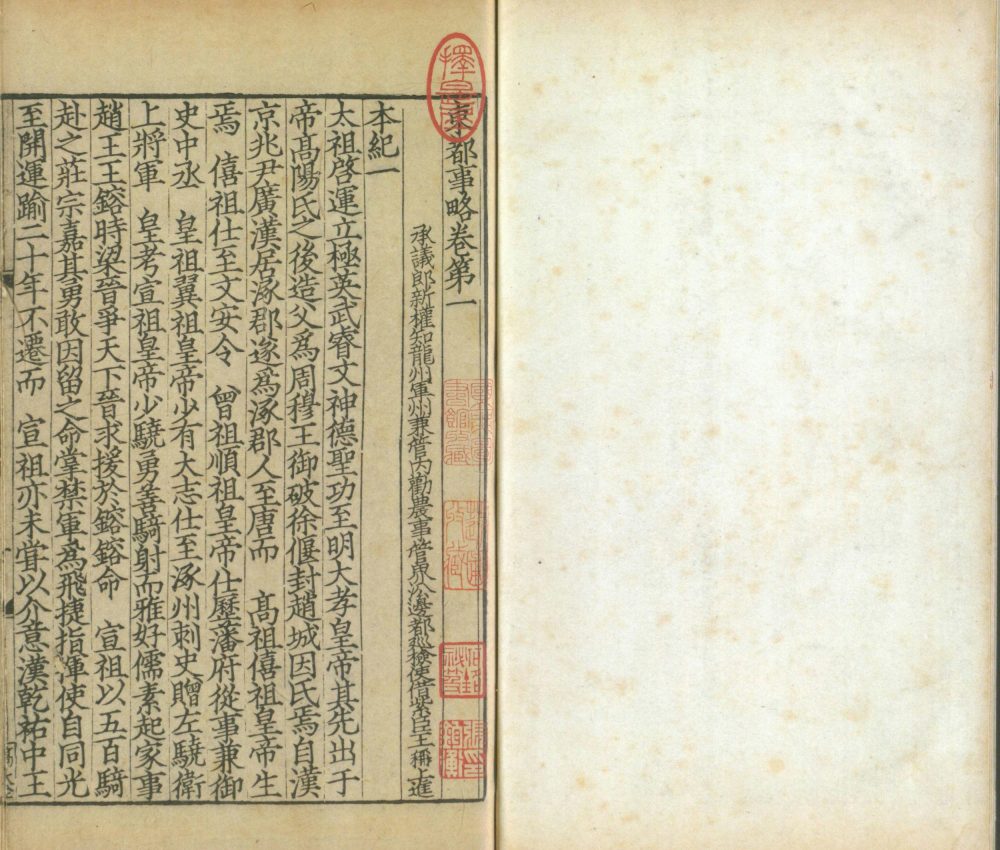 東都事略卷第一
承議郎新權知龍州軍州兼管內勸農事管界沿邊都巡檢使借紫臣王稱上進
本紀一
太祖啓運立極英武睿文神德聖功至明大孝皇帝其先出于
帝髙陽氏之後造父爲周穆王御破徐偃封趙城因氏焉自漢
京兆尹廣漢居涿郡遂爲涿郡人至唐而　髙祖僖祖皇帝生
焉　僖祖仕至文安令　曾祖順祖皇帝仕歷藩府從事兼御
史中丞　皇祖翼祖皇帝少有大志仕至涿州刺史贈左驍衛
上將軍　皇考宣祖皇帝少驍勇善騎射而雅好儒素起家事
趙王王鎔時梁晉爭天下晉求援於鎔鎔命　宣祖以五百騎
赴之莊宗嘉其勇敢因留之命掌禁軍爲飛捷指揮使自同光
至開運踰二十年不遷而　宣祖亦未甞以介意漢乾祐中王